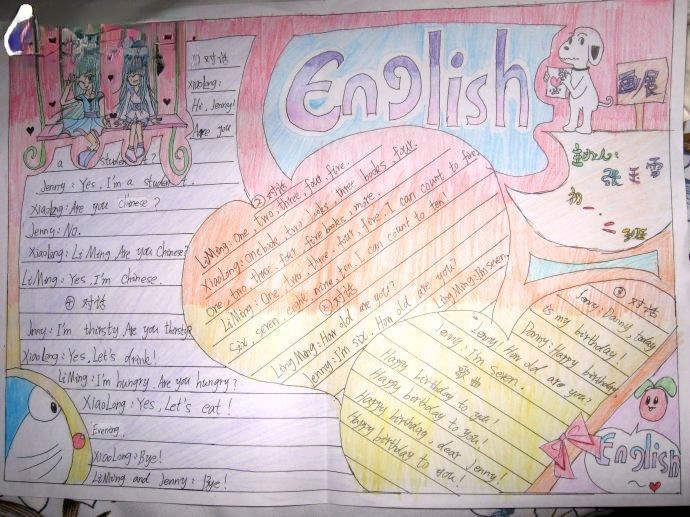 English
画展
① 对话
XiaoLong:
Hi, Jenny!
Are you
a student?
Jenny: Yes, I'm a student.
XiaoLong: Are you Chinese?
Jenny: No.
XiaoLong: Li Ming, Are you Chinese?
LiMing: Yes, I'm Chinese.
④ 对话
Jenny: I'm thirsty, Are you thirsty?
XiaoLong: Yes, Let's drink!
LiMing: I'm hungry, Are you hungry?
XiaoLong: Yes, Let's eat!
Evening.
XiaoLong: Bye!
LiMing and Jenny: Bye!
② 对话
LiMing: One, two, three, four, five.
XiaoLong: One book, two books, three books, four,
one, two, three, four, five books, more.
LiMing: One, two, three, four, five. I can count to five.
six, seven, eight, nine, ten. I can count to ten.
对话
Long Mang: How old are you?
Jenny: I'm six. How old are you?
Long Ming: I'm seven.
Jenny: How old are you?
Jenny: I'm seven.
歌曲
Happy birthday to you!
Happy birthday to you!
Happy birthday, dear Jenny!
Happy birthday to you!
③ 对话
Jenny: Danny, today
is my birthday!
Danny: Happy birthday!
张玉雪
初一
班
English